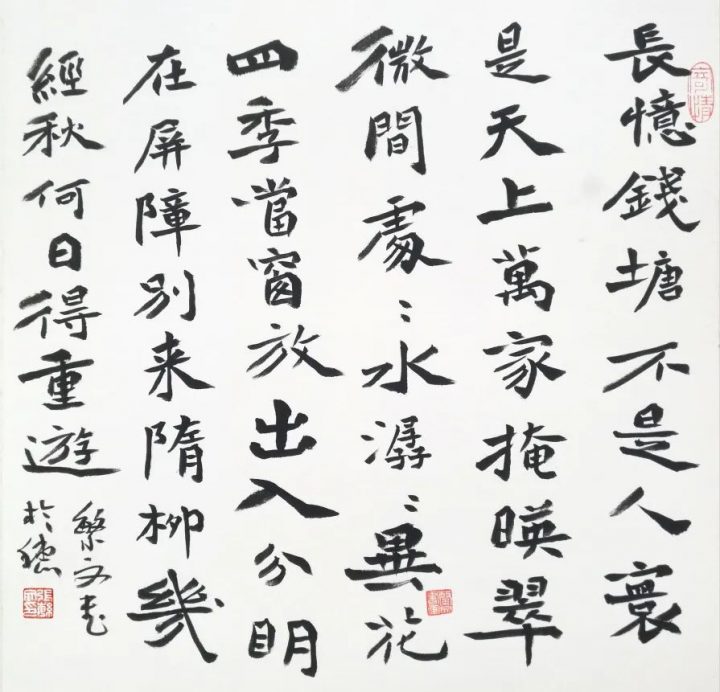 長憶錢塘不是人寰
是天上萬家掩暎翠
微間處〻水潺〻異花
四季當窗放出入分明
在屏障別来隋柳幾
經秋何日得重遊
繁文书
於穗